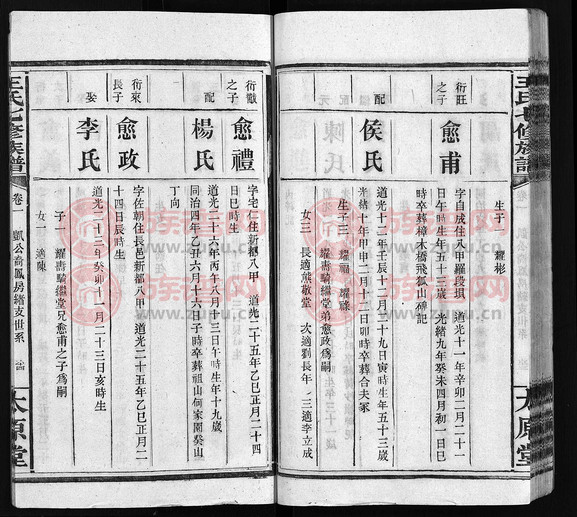 王氏七修族譜
生子一 耀彬
衍旺之子
愈甫
字自成住八甲羅段垻 道光十一年辛卯二月二十一
日午時生年五十三歲 光緒九年癸未四月初一日巳
時卒葬樟木橋飛狐山碑記
配
侯氏
道光十二年壬辰十二月二十九日寅時生年五十三歲
光緒十年甲申二月十二日卯時卒葬合夫冢
生子三 耀福 耀祿
耀壽驕繼堂弟愈政爲嗣
女三 長適熊敬堂 次適劉長年 三適李立成
衍獻之子
愈禮
字宅仁住新都八甲 道光二十五年乙巳正月二十四
日巳時生
配
楊氏
道光二十六年丙午八月十三日午時生年十九歲
同治四年乙丑六月十六日子時卒葬祖山何家園癸山
丁向
衍來長子
愈政
字佐朝住長邑新都八甲 道光二十五年乙巳正月二
十四日辰時生
娶
李氏
道光二十三年癸卯十一月二十三日亥時生
子一 耀壽驕繼堂兄愈甫之子爲嗣
女一 適陳
王氏七修族譜
卷一
凱公喬鳳房緒支世系
太原堂
太原堂
族譜網
www.zupu.cn